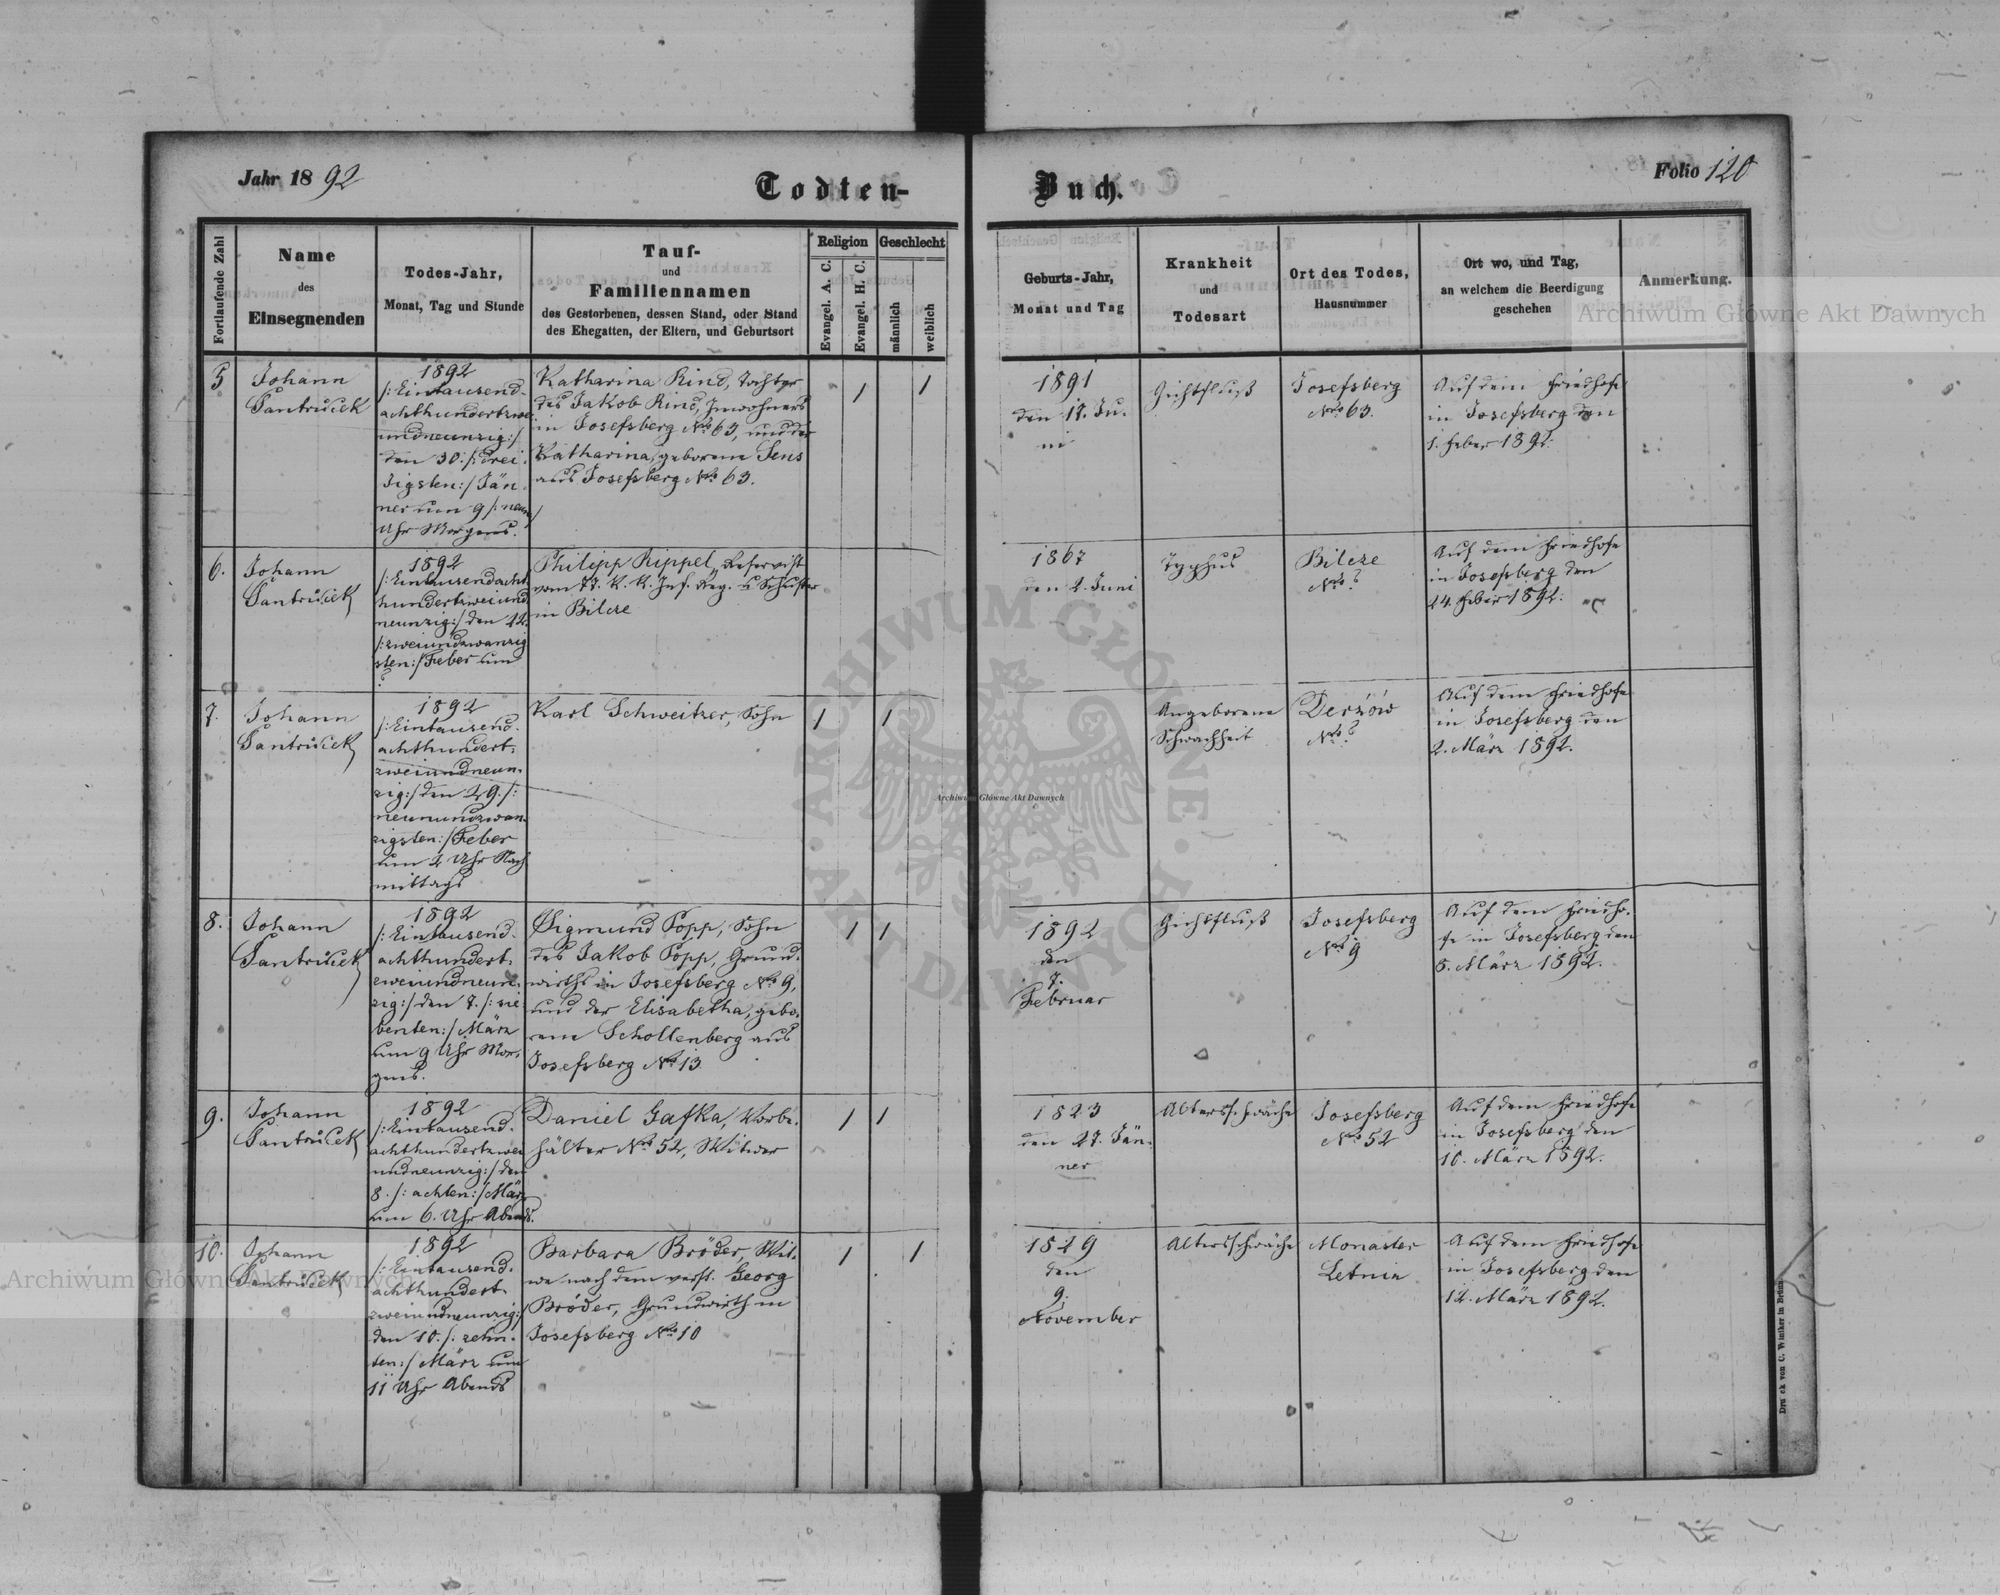 Jahr 1892
Todten-
Buch.
Folio 120
Fortlaufende Zahl
Name
des
Einsegnenden
Todes-Jahr,
Monat, Tag und Stunde
Tauf-
und
Familiennamen
des Gestorbenen, dessen Stand, oder Stand
des Ehegatten, der Eltern, und Geburtsort
Religion
Evangel. A. C.
Evangel. H. C.
Geschlecht
männlich
weiblich
Geburts-Jahr,
Monat und Tag
Krankheit
und
Todesart
Ort des Todes,
Hausnummer
Ort wo, und Tag,
an welchem die Beerdigung
geschehen
Anmerkung.
5
Johann
Santrůček
1892
/: Eintausend-
achthundertzwei
undneunzig :/
den 30. /: drei
sigsten :/ Jän
ner um 9 /: neun /
Uhr Morgens.
Katharina Rind, Tochter
des Jakob Rind, Inwohners
in Josefsberg No 63, und der
Katharina, geborene Sens
aus Josefsberg No 63.
/
/
1891
den 12. Ju-
ni
Gichtfluß
Josefsberg
No 63.
Auf dem Friedhofe
in Josefsberg den
1. Feber 1892.
6.
Johann
Santrůček
1892
/: Eintausendacht
hundertzweiund
neunzig :/ den 22.
/: zweiundzwanzig
sten :/ Feber um
?
Philipp Rippel, Reservist
vom 77. K. K. Inf. Reg. u Schuster
in Bilcze
1867
den 2. Juni
Typhus
Bilcze
No ?
Auf dem Friedhofe
in Josefsberg den
24. Feber 1892.
7.
Johann
Santrůček
1892
/: Eintausend-
achthundert-
zweiundneun-
zig :/ den 29. /:
neunundzwan-
zigsten :/ Feber
um 2 Uhr Nach
mittags
Karl Schweitzer, Sohn
/
/
Angeborene
Schwachheit
Derżów
No ?
Auf dem Friedhofe
in Josefsberg den
2. März 1892.
8.
Johann
Santrůček
1892
/: Eintausend-
achthundert-
zweiundneun-
zig :/ den 7. /: sie
benten :/ März
um 9 Uhr Mor-
gens.
Sigmund Popp, Sohn
des Jakob Popp, Grund-
wirths in Josefsberg No 9,
und der Elisabetha, gebo-
rene Schollenberg aus
Josefsberg No 13.
/
/
1892
den
7.
Februar
Gichtfluß
Josefsberg
No 9
Auf dem Friedho-
fe in Josefsberg den
8. März 1892.
9.
Johann
Santrůček
1892
/: Eintausend-
achthundertzwei
undneunzig :/ den
8. /: achten :/ März
um 6. Uhr Abends.
Daniel Gafka, Vorbe-
hälter No 52, Witwer
/
/
1823
den 27. Jän-
ner
Altersschwäche
Josefsberg
No 52
Auf dem Friedhofe
in Josefsberg den
10. März 1892.
10.
Johann
Santrůček
1892
/: Eintausend-
achthundert
zweiundneunzig :/
den 10. /: zehn-
ten :/ März um
11 Uhr Abends
Barbara Bröder, Wit-
we nach dem verst. Georg
Bröder, Grundwirth in
Josefsberg No 10
/
/
1829
den
9.
November
Altersschwäche
Monaster
Letnia
Auf dem Friedhofe
in Josefsberg den
12. März 1892.
Druck von C. Winiker in Brünn
Archiwum Główne Akt Dawnych
Archiwum Główne Akt Dawnych
Archiwum Główne Akt Dawnych
ARCHIWUM GŁÓWNE · AKT DAWNYCH ·